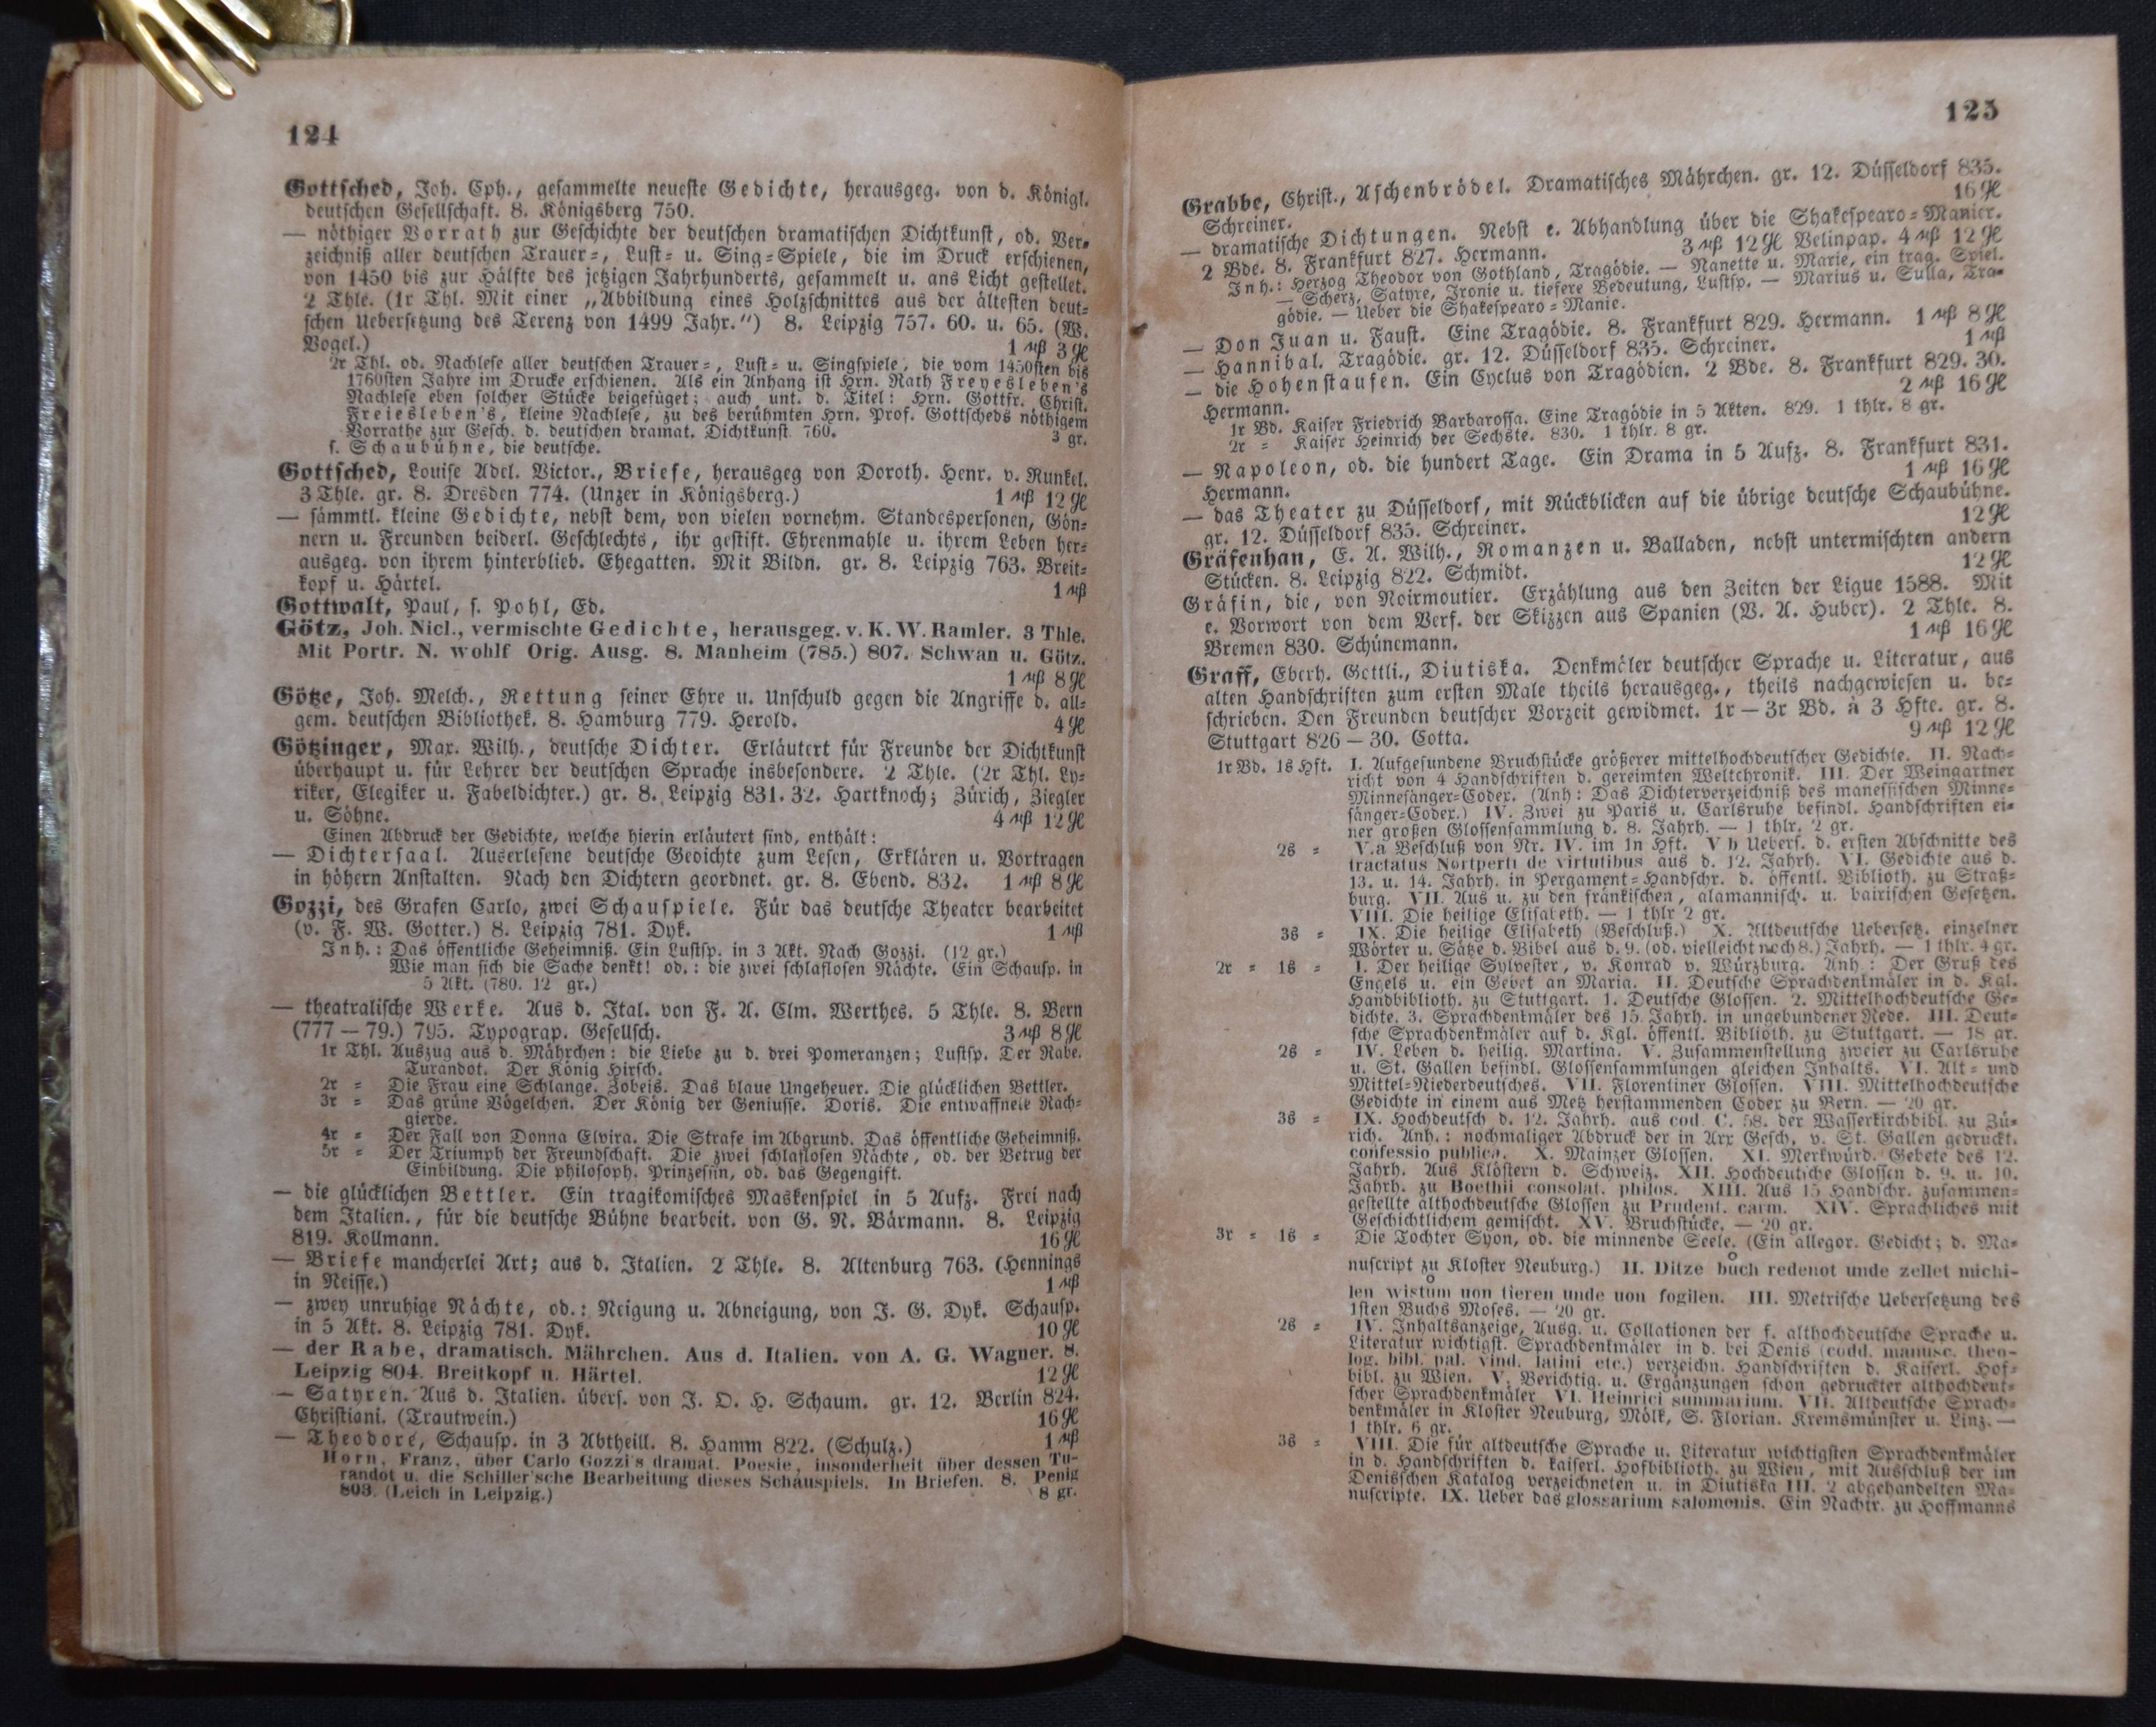 124
Gottsched, Joh. Cph., gesammelte neueste Gedichte, herausgeg. von d. Königl.
deutschen Gesellschaft. 8. Königsberg 750.
— nöthiger Vorrath zur Geschichte der deutschen dramatischen Dichtkunst, od. Ver=
zeichniß aller deutschen Trauer=, Lust= u. Sing=Spiele, die im Druck erschienen,
von 1450 bis zur Hälfte des jetzigen Jahrhunderts, gesammelt u. ans Licht gestellet.
2 Thle. (1r Thl. Mit einer „Abbildung eines Holzschnittes aus der ältesten deut=
schen Uebersetzung des Terenz von 1499 Jahr.“) 8. Leipzig 757. 60. u. 65. (W.
Vogel.) 1 ₰ 3 gl
2r Thl. od. Nachlese aller deutschen Trauer=, Lust= u. Singspiele, die vom 1450sten bis
1760sten Jahre im Drucke erschienen. Als ein Anhang ist Hrn. Rath Freyesleben's
Nachlese eben solcher Stücke beigefüget; auch unt. d. Titel: Hrn. Gottfr. Christ.
Freiesleben's, kleine Nachlese, zu des berühmten Hrn. Prof. Gottscheds nöthigem
Vorrathe zur Gesch. d. deutschen dramat. Dichtkunst 760. 3 gr.
s. Schaubühne, die deutsche.
Gottsched, Louise Adel. Victor., Briefe, herausgeg von Doroth. Henr. v. Runkel.
3 Thle. gr. 8. Dresden 774. (Unzer in Königsberg.) 1 ₰ 12 gl
— sämmtl. kleine Gedichte, nebst dem, von vielen vornehm. Standespersonen, Gön=
nern u. Freunden beiderl. Geschlechts, ihr gestift. Ehrenmahle u. ihrem Leben her=
ausgeg. von ihrem hinterblieb. Ehegatten. Mit Bildn. gr. 8. Leipzig 763. Breit=
kopf u. Härtel. 1 ₰
Gottwalt, Paul, s. Pohl, Ed.
Götz, Joh. Nicl., vermischte Gedichte, herausgeg. v. K. W. Ramler. 3 Thle.
Mit Portr. N. wohlf Orig. Ausg. 8. Manheim (785.) 807. Schwan u. Götz.
1 ₰ 8 gl
Götze, Joh. Melch., Rettung seiner Ehre u. Unschuld gegen die Angriffe d. all=
gem. deutschen Bibliothek. 8. Hamburg 779. Herold. 4 gl
Götzinger, Max. Wilh., deutsche Dichter. Erläutert für Freunde der Dichtkunst
überhaupt u. für Lehrer der deutschen Sprache insbesondere. 2 Thle. (2r Thl. Ly=
riker, Elegiker u. Fabeldichter.) gr. 8. Leipzig 831. 32. Hartknoch; Zürich, Ziegler
u. Söhne. 4 ₰ 12 gl
Einen Abdruck der Gedichte, welche hierin erläutert sind, enthält:
— Dichtersaal. Auserlesene deutsche Gedichte zum Lesen, Erklären u. Vortragen
in höhern Anstalten. Nach den Dichtern geordnet. gr. 8. Ebend. 832. 1 ₰ 8 gl
Gozzi, des Grafen Carlo, zwei Schauspiele. Für das deutsche Theater bearbeitet
(v. F. W. Gotter.) 8. Leipzig 781. Dyk. 1 ₰
Inh.: Das öffentliche Geheimniß. Ein Lustsp. in 3 Akt. Nach Gozzi. (12 gr.)
Wie man sich die Sache denkt! od.: die zwei schlaflosen Nächte. Ein Schausp. in
5 Akt. (780. 12 gr.)
— theatralische Werke. Aus d. Ital. von F. A. Clm. Werthes. 5 Thle. 8. Bern
(777 — 79.) 795. Typograp. Gesellsch. 3 ₰ 8 gl
1r Thl. Auszug aus d. Mährchen: die Liebe zu d. drei Pomeranzen; Lustsp. Der Rabe.
Turandot. Der König Hirsch.
2r = Die Frau eine Schlange. Zobeis. Das blaue Ungeheuer. Die glücklichen Bettler.
3r = Das grüne Vögelchen. Der König der Geniusse. Doris. Die entwaffnete Rach=
gierde.
4r = Der Fall von Donna Elvira. Die Strafe im Abgrund. Das öffentliche Geheimniß.
5r = Der Triumph der Freundschaft. Die zwei schlaflosen Nächte, od. der Betrug der
Einbildung. Die philosoph. Prinzessin, od. das Gegengift.
— die glücklichen Bettler. Ein tragikomisches Maskenspiel in 5 Aufz. Frei nach
dem Italien., für die deutsche Bühne bearbeit. von G. N. Bärmann. 8. Leipzig
819. Kollmann. 16 gl
— Briefe mancherlei Art; aus d. Italien. 2 Thle. 8. Altenburg 763. (Hennings
in Neisse.) 1 ₰
— zwey unruhige Nächte, od.: Neigung u. Abneigung, von J. G. Dyk. Schausp.
in 5 Akt. 8. Leipzig 781. Dyk. 10 gl
— der Rabe, dramatisch. Mährchen. Aus d. Italien. von A. G. Wagner. 8.
Leipzig 804. Breitkopf u. Härtel. 12 gl
— Satyren. Aus d. Italien. übers. von J. O. H. Schaum. gr. 12. Berlin 824.
Christiani. (Trautwein.) 16 gl
— Theodore, Schausp. in 3 Abtheill. 8. Hamm 822. (Schulz.) 1 ₰
Horn, Franz, über Carlo Gozzi's dramat. Poesie, insonderheit über dessen Tu-
randot u. die Schiller'sche Bearbeitung dieses Schauspiels. In Briefen. 8. Penig
803. (Leich in Leipzig.) 8 gr.
125
Grabbe, Christ., Aschenbrödel. Dramatisches Mährchen. gr. 12. Düsseldorf 835.
Schreiner. 16 gl
— dramatische Dichtungen. Nebst e. Abhandlung über die Shakespearo=Manier.
2 Bde. 8. Frankfurt 827. Hermann. 3 ₰ 12 gl Velinpap. 4 ₰ 12 gl
Inh.: Herzog Theodor von Gothland, Tragödie. — Nanette u. Marie, ein trag. Spiel.
— Scherz, Satyre, Ironie u. tiefere Bedeutung, Lustsp. — Marius u. Sulla, Tra=
gödie. — Ueber die Shakespearo=Manie.
— Don Juan u. Faust. Eine Tragödie. 8. Frankfurt 829. Hermann. 1 ₰ 8 gl
— Hannibal. Tragödie. gr. 12. Düsseldorf 835. Schreiner. 1 ₰
— die Hohenstaufen. Ein Cyclus von Tragödien. 2 Bde. 8. Frankfurt 829. 30.
Hermann. 2 ₰ 16 gl
1r Bd. Kaiser Friedrich Barbarossa. Eine Tragödie in 5 Akten. 829. 1 thlr. 8 gr.
2r = Kaiser Heinrich der Sechste. 830. 1 thlr. 8 gr.
— Napoleon, od. die hundert Tage. Ein Drama in 5 Aufz. 8. Frankfurt 831.
Hermann. 1 ₰ 16 gl
— das Theater zu Düsseldorf, mit Rückblicken auf die übrige deutsche Schaubühne.
gr. 12. Düsseldorf 835. Schreiner. 12 gl
Gräfenhan, E. A. Wilh., Romanzen u. Balladen, nebst untermischten andern
Stücken. 8. Leipzig 822. Schmidt. 12 gl
Gräfin, die, von Noirmoutier. Erzählung aus den Zeiten der Ligue 1588. Mit
e. Vorwort von dem Verf. der Skizzen aus Spanien (V. A. Huber). 2 Thle. 8.
Bremen 830. Schünemann. 1 ₰ 16 gl
Graff, Eberh. Gottli., Diutiska. Denkmäler deutscher Sprache u. Literatur, aus
alten Handschriften zum ersten Male theils herausgeg., theils nachgewiesen u. be=
schrieben. Den Freunden deutscher Vorzeit gewidmet. 1r — 3r Bd. à 3 Hfte. gr. 8.
Stuttgart 826 — 30. Cotta. 9 ₰ 12 gl
1r Bd. 1s Hft. I. Aufgefundene Bruchstücke größerer mittelhochdeutscher Gedichte. II. Nach=
richt von 4 Handschriften d. gereimten Weltchronik. III. Der Weingartner
Minnesänger=Codex. (Anh: Das Dichterverzeichniß des manessischen Minne=
sänger=Codex.) IV. Zwei zu Paris u. Carlsruhe befindl. Handschriften ei=
ner großen Glossensammlung d. 8. Jahrh. — 1 thlr. 2 gr.
2s = V.a Beschluß von Nr. IV. im 1n Hft. V b Uebers. d. ersten Abschnitte des
tractatus Nortperti de virtutibus aus d. 12. Jahrh. VI. Gedichte aus d.
13. u. 14. Jahrh. in Pergament=Handschr. d. öffentl. Biblioth. zu Straß=
burg. VII. Aus u. zu den fränkischen, alamannisch. u. bairischen Gesetzen.
VIII. Die heilige Elisabeth. — 1 thlr 2 gr.
3s = IX. Die heilige Elisabeth (Beschluß.) X. Altdeutsche Uebersetz. einzelner
Wörter u. Sätze d. Bibel aus d. 9. (od. vielleicht noch 8.) Jahrh. — 1 thlr. 4 gr.
2r = 1s = I. Der heilige Sylvester, v. Konrad v. Würzburg. Anh: Der Gruß des
Engels u. ein Gebet an Maria. II. Deutsche Sprachdenkmäler in d. Kgl.
Handbiblioth. zu Stuttgart. 1. Deutsche Glossen. 2. Mittelhochdeutsche Ge=
dichte. 3. Sprachdenkmäler des 15. Jahrh. in ungebundener Rede. III. Deut=
sche Sprachdenkmäler auf d. Kgl. öffentl. Biblioth. zu Stuttgart. — 18 gr.
2s = IV. Leben d. heilig. Martina. V. Zusammenstellung zweier zu Carlsruhe
u. St. Gallen befindl. Glossensammlungen gleichen Inhalts. VI. Alt= und
Mittel=Niederdeutsches. VII. Florentiner Glossen. VIII. Mittelhochdeutsche
Gedichte in einem aus Metz herstammenden Codex zu Bern. — 20 gr.
3s = IX. Hochdeutsch d. 12. Jahrh. aus cod. C. 58. der Wasserkirchbibl. zu Zü=
rich. Anh.: nochmaliger Abdruck der in Arx Gesch. v. St. Gallen gedruckt.
confessio publica. X. Mainzer Glossen. XI. Merkwürd. Gebete des 12.
Jahrh. Aus Klöstern d. Schweiz. XII. Hochdeutsche Glossen d. 9. u. 10.
Jahrh. zu Boethii consolat. philos. XIII. Aus 15 Handschr. zusammen=
gestellte althochdeutsche Glossen zu Prudent. carm. XIV. Sprachliches mit
Geschichtlichem gemischt. XV. Bruchstücke. — 20 gr.
3r = 1s = Die Tochter Syon, od. die minnende Seele. (Ein allegor. Gedicht; d. Ma=
nuscript zu Kloster Neuburg.) II. Ditze bůch redenot unde zellet michi-
len wistům uon tieren unde uon fogilen. III. Metrische Uebersetzung des
1sten Buchs Moses. — 20 gr.
2s = IV. Inhaltsanzeige, Ausg. u. Collationen der f. althochdeutsche Sprache u.
Literatur wichtigst. Sprachdenkmäler in d. bei Denis (codd. manusc. theo-
log. bibl. pal. vind. latini etc.) verzeichn. Handschriften d. Kaiserl. Hof=
bibl. zu Wien. V. Berichtig. u. Ergänzungen schon gedruckter althochdeut=
scher Sprachdenkmäler VI. Heinrici summarium. VII. Altdeutsche Sprach=
denkmäler in Kloster Neuburg, Mölk, S. Florian. Kremsmünster u. Linz. —
1 thlr. 6 gr.
3s = VIII. Die für altdeutsche Sprache u. Literatur wichtigsten Sprachdenkmäler
in d. Handschriften d. kaiserl. Hofbiblioth. zu Wien, mit Ausschluß der im
Denisschen Katalog verzeichneten u. in Diutiska III. 2 abgehandelten Ma=
nuscripte. IX. Ueber das glossarium salomonis. Ein Nachtr. zu Hoffmanns